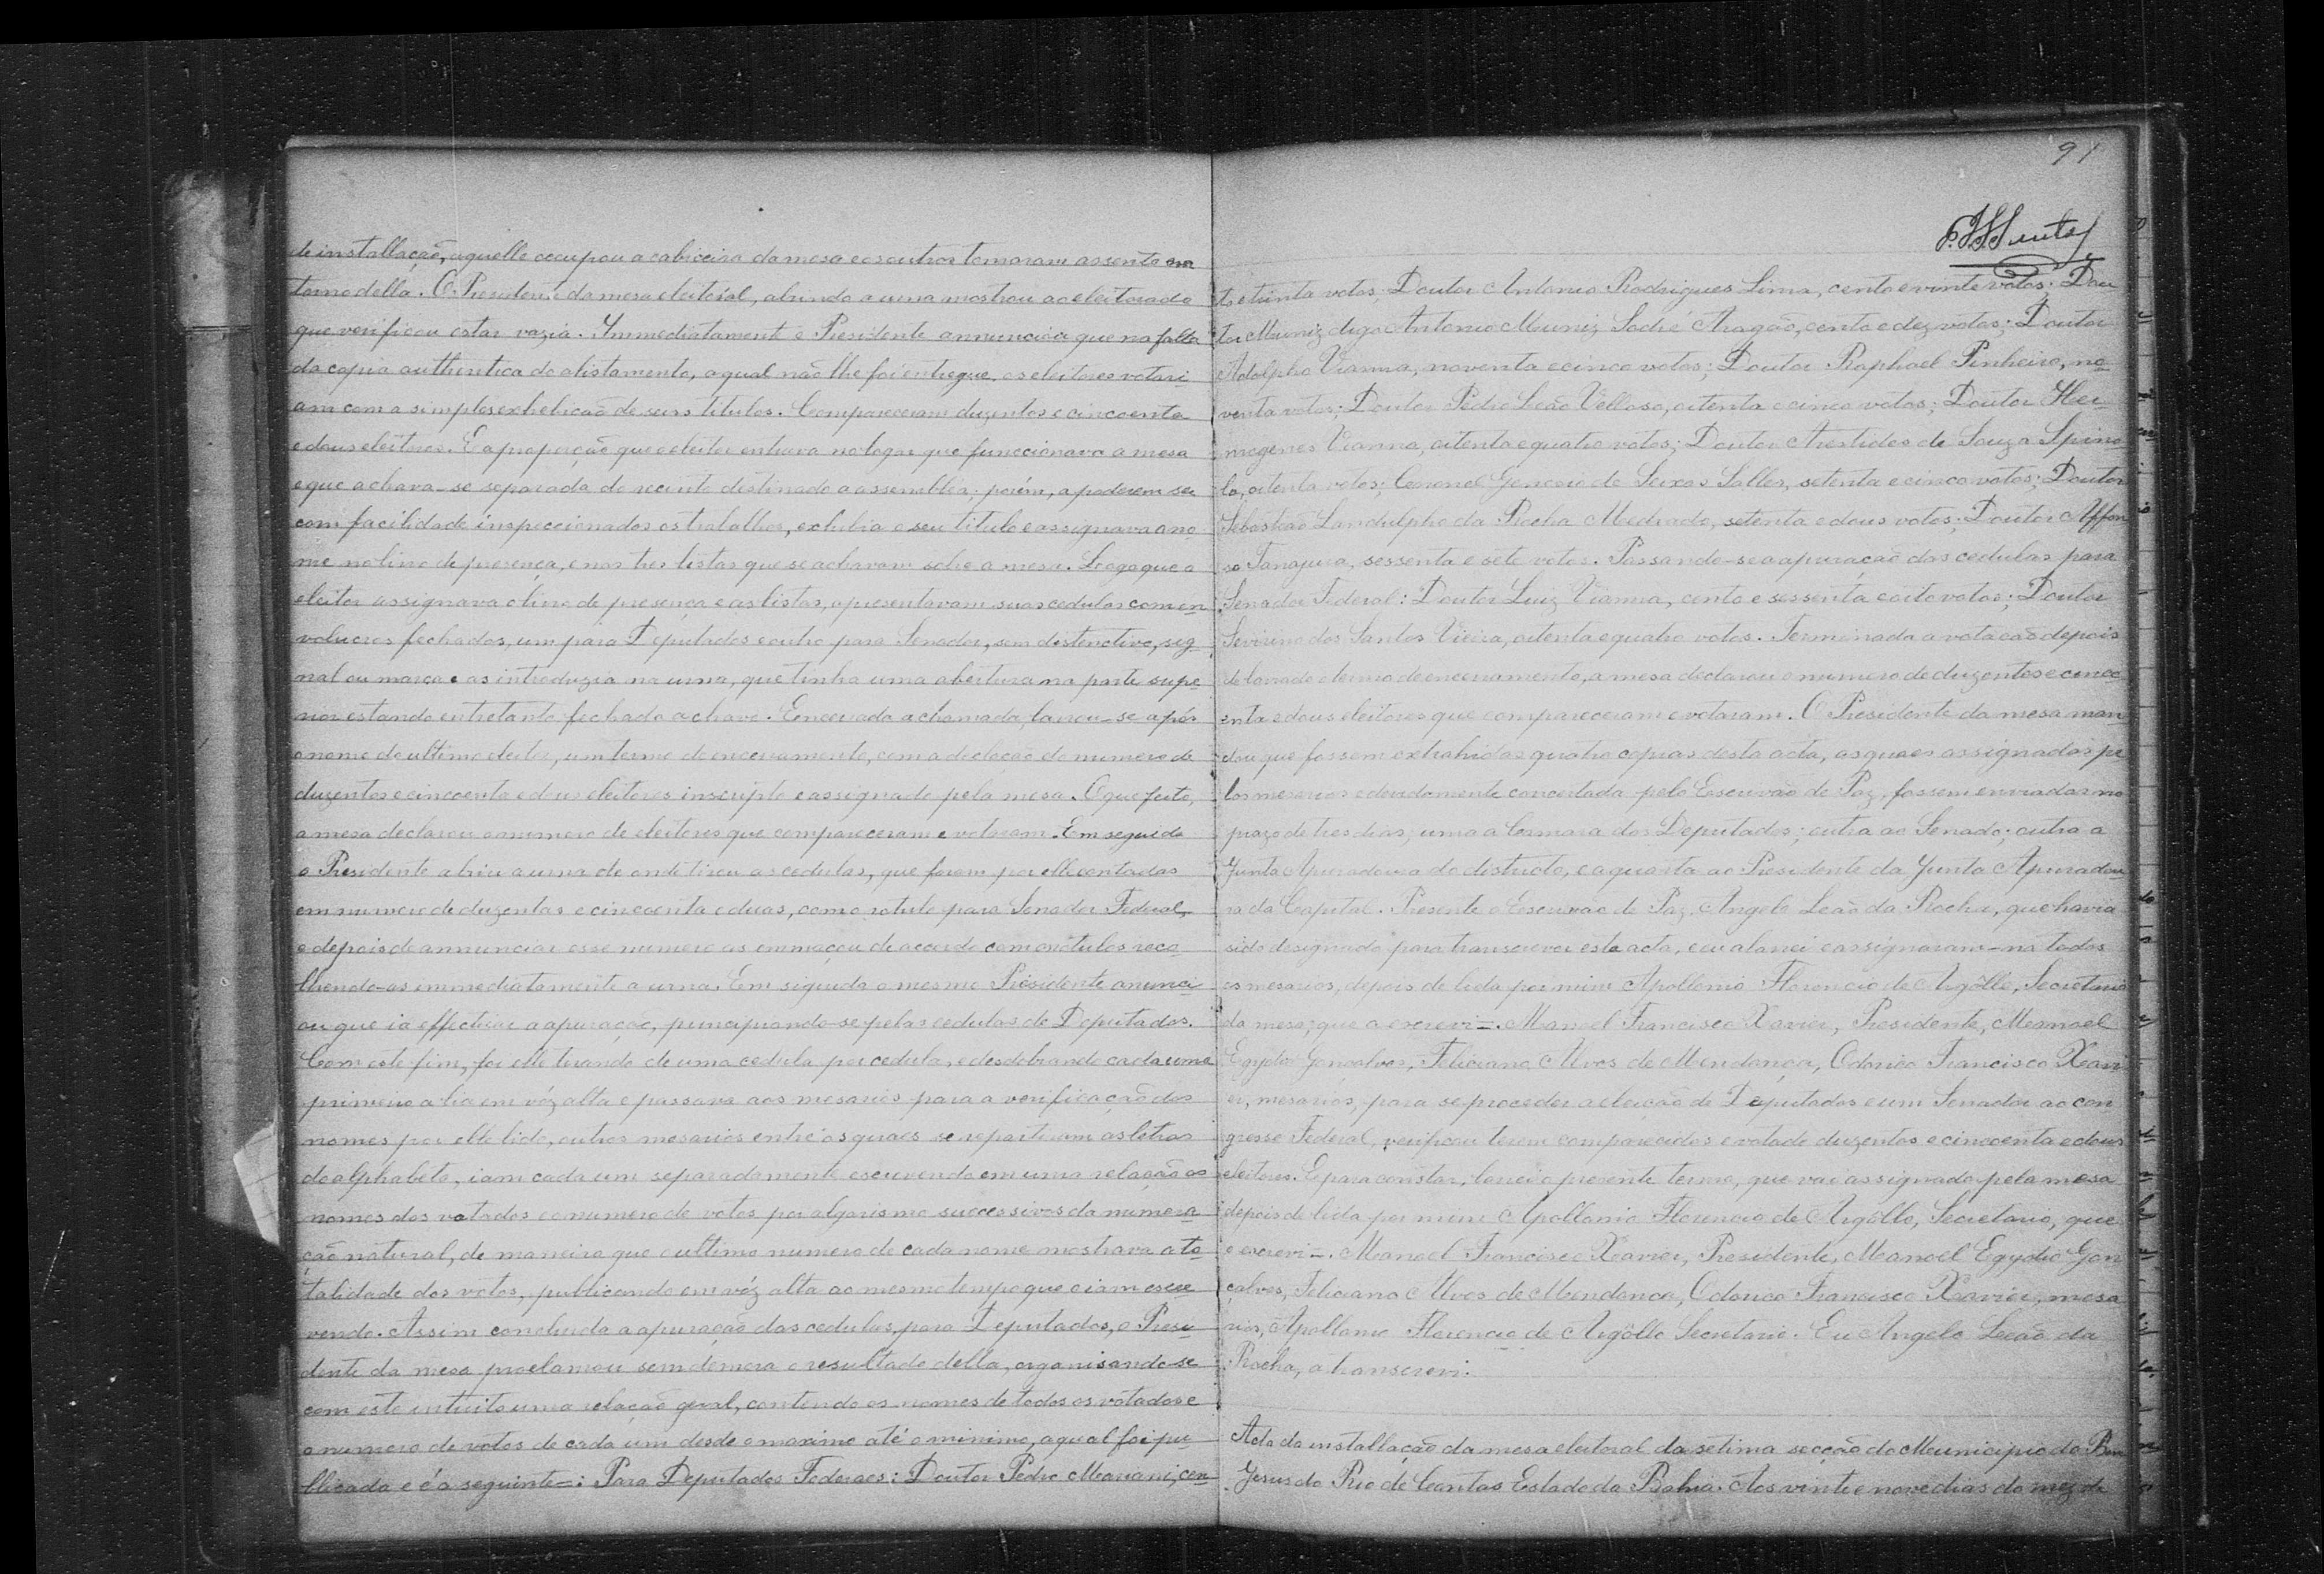 de installação, aquelle occupou a cabiceira da mesa e os outros tomaram assento em
torno della. O Presidente da mesa eleitoral, abrindo a urna mostrou ao eleitorado
que verificou estar vazia. Immediatamente o Presidente annunciou que na falta
da copia authentica do alistamento, a qual não lhe foi entregue, os eleitores votari-
am com a simples exhibição de seus titulos. Compareceram duzentos e cincoenta
e dous eleitores. E a proporção que o eleitor entrava no logar que funccionava a mesa
e que achava-se separada do recinto destinado a assembléa; porém, a poderem ser
com facilidade inspeccionados os trabalhos, exhibia o seu titulo e assignava o no-
me no livro de presença, e nas tres listas que se achavam sobre a mesa. Logo que o
eleitor assignava o livro de presença e as listas, apresentavam suas cedulas com en-
volucros fechados, um para Deputados e outro para Senador, sem distinctivo, sig-
nal ou marca e as introduzia na urna, que tinha uma abertura na parte supe-
rior estando entretanto fechada a chave. Encerrada a chamada, lavrou-se após
o nome do ultimo eleitor, um termo de encerramento, com a declaração do numero de
duzentos e cincoenta e dous eleitores inscripto e assignado pela mesa. O que feito,
a mesa declarou o numero de eleitores que compareceram e votaram. Em seguida
o Presidente abriu a urna de onde tirou as cedulas, que foram por elle contadas
em numero de duzentas e cincoenta e duas, com o rotulo para Senador Federal,
e depois de annunciar esse numero as emmaçou de accordo com os rotulos reco-
lhendo-as immediatamente a urna. Em siguida o mesmo Presidente anunci-
ou que ia effectuar a apuração, principiando-se pelas cedulas de Deputados.
Com este fim, foi elle tirando de uma cedula por cedula, e desdobrando cada uma
primeiro a lia em vóz alta e passava aos mesarios para a verificação dos
nomes por elle lido, outros mesarios entre os quaes se repartiram as letras
do alphabeto, iam cada um separadamente escrevendo em uma relação os
nomes dos votados e o numero de votos por algarismo successivos da numera-
ção natural, de maneira que o ultimo numero de cada nome mostrava a to-
talidade dos votos, publicando em vóz alta ao mesmo tempo que o iam escre-
vendo. Assim concluida a apuração das cedulas, para Deputados, o Presi-
dente da mesa proclamou sem demora o resultado della, organisando-se
com este intuito uma relação geral, contendo os nomes de todos os votados e
o numero de votos de cada um desde o maximo até o minimo, a qual foi pu-
blicada e é a seguinte=: Para Deputados Federaes: Doutor Pedro Mariani, cen-
91
to e trinta votos; Doutor Antonio Rodrigues Lima, cento e vinte votos; Dou
tor Muniz digo Antonio Muniz Sodré Aragão, cento e dez votos; Doutor
Adolpho Vianna, noventa e cinco votos; Doutor Raphael Pinheiro, no-
venta votos; Doutor Pedro Leão Velloso, oitenta e cinco votos; Doutor Her-
mogenes Vianna, oitenta e quatro votos; Doutor Aristides de Souza Spino-
la, oitenta votos; Coronel Gencerio de Seixas Salles, setenta e cinco votos; Doutor
Sebastião Landulpho da Rocha Medrado, setenta e dous votos; Doutor Affon
so Tanajura, sessenta e sete votos. Passando-se a apuração das cedulas para
Senador Federal: Doutor Luiz Vianna, cento e sessenta e oito votos; Doutor
Sevirino dos Santos Vieira, oitenta e quatro votos. Terminada a votação depois
de lavrado o termo de encerramento, a mesa declarou o numero de duzentos e cinco-
enta e dous eleitores que compareceram e votaram. O Presidente da mesa man
dou que fossem extrahidas quatro copias desta acta, as quaes assignadas pe
los mesarios e devidamente concertada pelo Escrivão de Paz, fossem enviadas no
prazo de tres dias; uma a Camara dos Deputados; outra ao Senado; outra a
Junta Apuradora do districto, e a quarta ao Presidente da Junta Apurado-
ra da Capital. Presente o Escrivão de Paz, Angelo Leão da Rocha, que havia
sido designado para transcrever esta acta, eu a lavrei e assignaram-na todos
os mesarios, depois de lida por mim Apollonio Florencio de Argôllo, Secretario
da mesa, que a escrevi=. Manoel Francisco Xavier, Presidente, Manoel
Egydio Gonçalves, Feliciano Alves de Mendonça, Odorico Francisco Xavi
er, mesarios, para se proceder a eleição de Deputados e um Senador ao con
gresso Federal, verificou terem comparecidos e votado duzentos e cincoenta e dous
eleitores. E para constar, lavrei o presente termo, que vai assignado pela mesa
depois de lida por mim Apollonio Florencio de Argôllo, Secretario, que
o escrevi=. Manoel Francisco Xavier, Presidente, Manoel Egydio Gon
çalves, Feliciano Alves de Mendonca, Odorico Francisco Xavier, mesa
rios, Apollonio Florencio de Argôllo Secretario. Eu Angelo Leão da
Rocha, o transcrevi.
Acta da installação da mesa eleitoral da setima secção do Municipio do Bom
Jesus do Rio de Contas Estado da Bahia. Aos vinte e nove dias do mez de